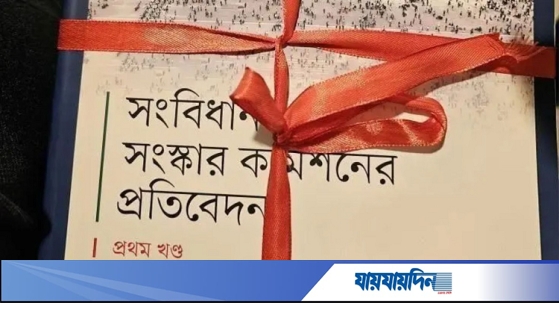 সংবিধান
সংস্কার কমিশনের
প্রতিবেদন
প্রথম খণ্ড
যায়যায়দিন